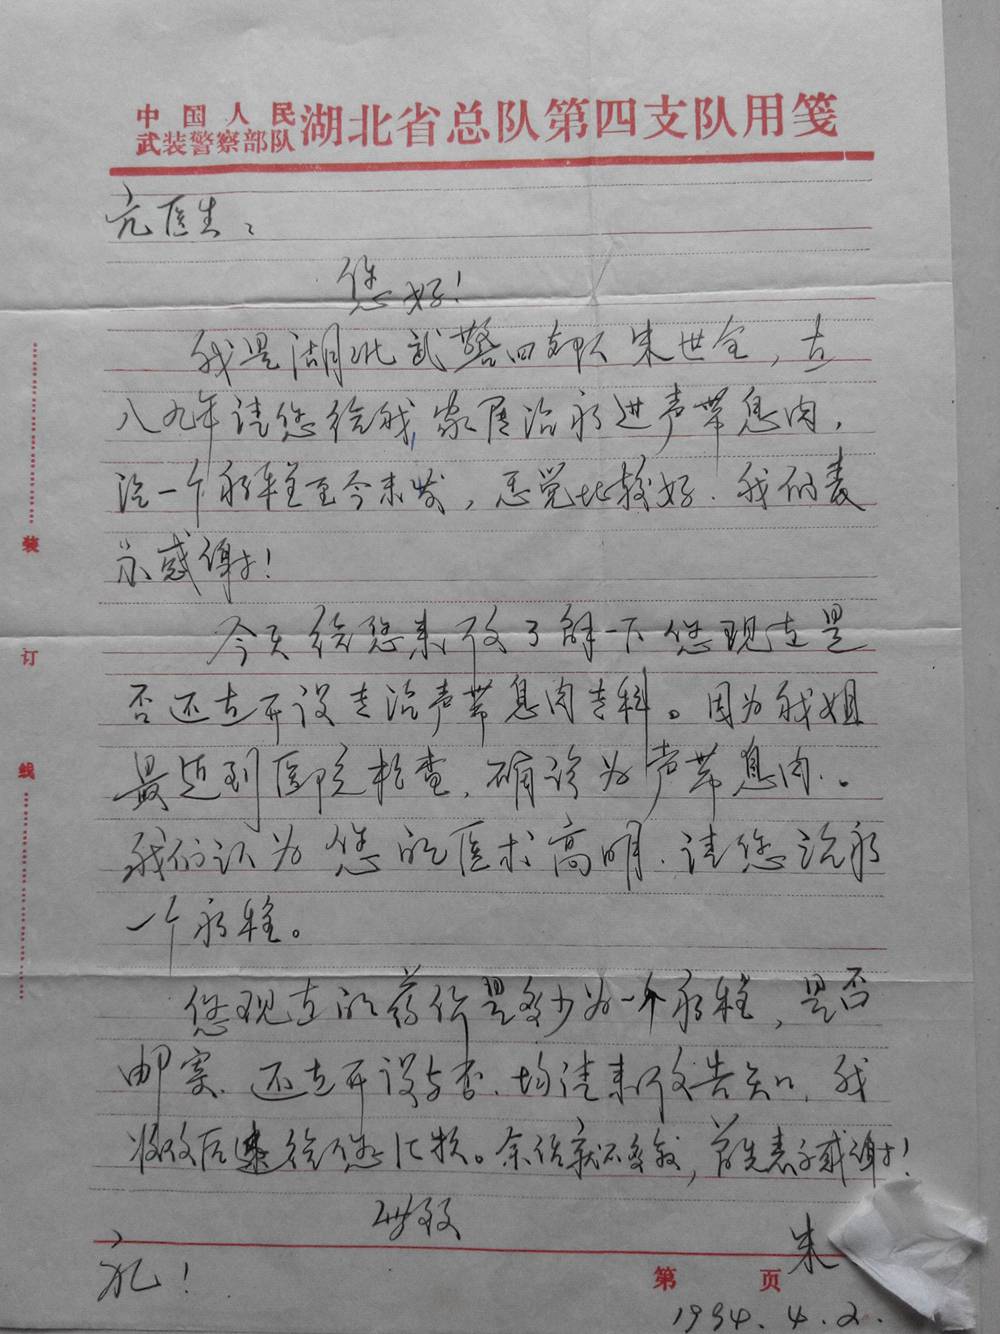 中国人民
武装警察部队 湖北省总队第四支队用笺
亢医生：
您好！
我是湖北武警四支队朱世全，在
八九年请您给我家属治疗过声带息肉，
治一个疗程至今未发，感觉比较好．我们表
示感谢！
今天给您来信了解一下您现在是
否还在开设专治声带息肉专科。因为我姐
最近到医院检查，确诊为声带息肉。
我们认为您的医术高明．请您治疗
一个疗程。
您现在的药价是多少为一个疗程，是否
邮寄．还在开设与否．均请来信告知，我
收信后速给您汇款。余话就不多叙，首先表示感谢！
此致
礼！
朱
1994.4.2.
第 页
装
订
线